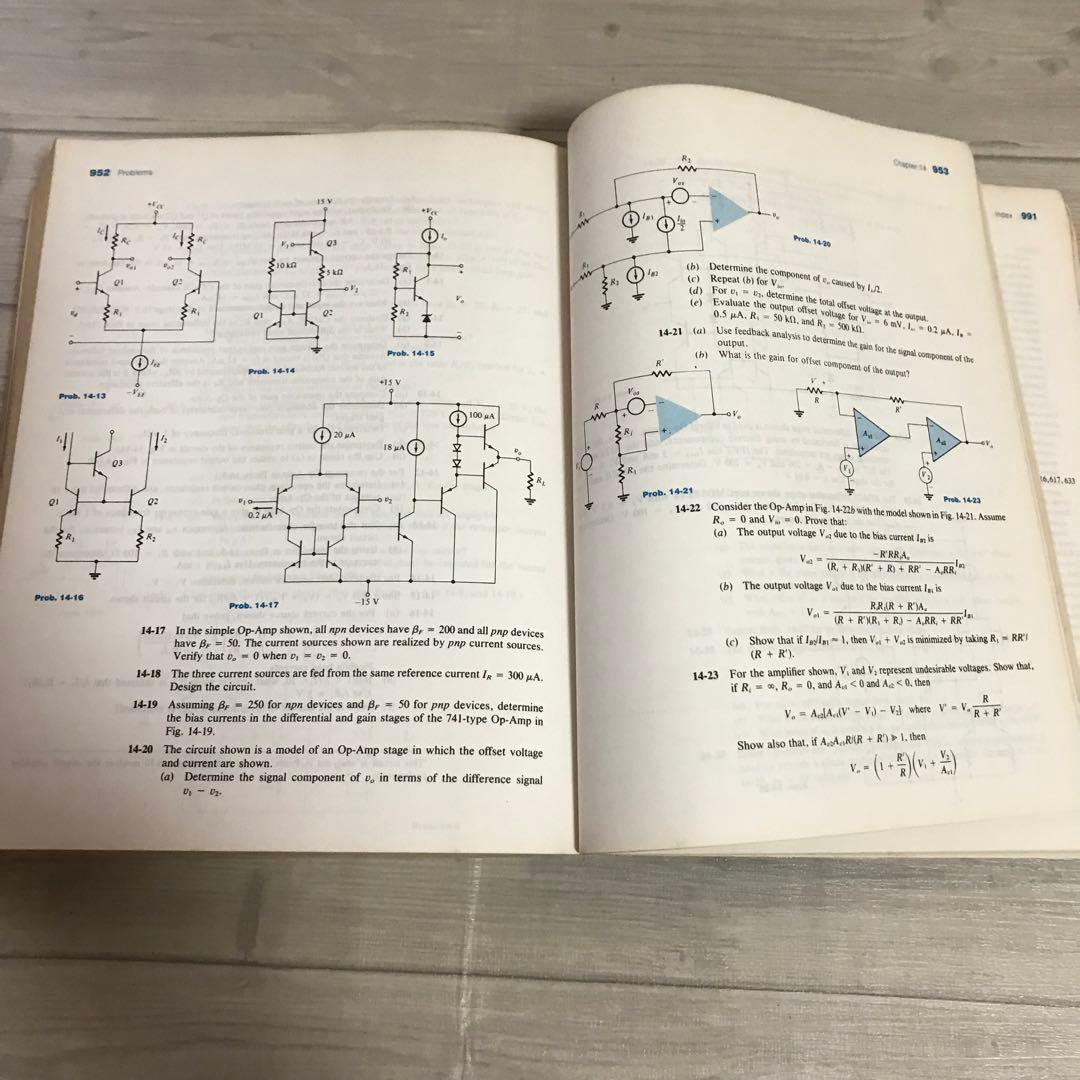 952 Problems
+V_CC
I_C
R_C
I_C
R_C
v_o1
v_o2
Q1
Q2
v_d
I_EE
-V_EE
Prob. 14-13
15 V
Q3
10 kΩ
5 kΩ
Q1
Q2
Prob. 14-14
+V_CC
I_o
R_1
R_2
V_o
Prob. 14-15
I_1
I_2
Q3
Q1
Q2
R_1
R_2
Prob. 14-16
+15 V
20 μA
18 μA
100 μA
v_1
v_2
0.2 μA
v_o
R_L
-15 V
Prob. 14-17
14-17 In the simple Op-Amp shown, all npn devices have β_F = 200 and all pnp devices
have β_F = 50. The current sources shown are realized by pnp current sources.
Verify that v_o = 0 when v_1 = v_2 = 0.
14-18 The three current sources are fed from the same reference current I_R = 300 μA.
Design the circuit.
14-19 Assuming β_F = 250 for npn devices and β_F = 50 for pnp devices, determine
the bias currents in the differential and gain stages of the 741-type Op-Amp in
Fig. 14-19.
14-20 The circuit shown is a model of an Op-Amp stage in which the offset voltage
and current are shown.
(a) Determine the signal component of v_o in terms of the difference signal
v_1 - v_2.
Chapter 14 953
R_2
V_os
R_1
I_B1
v_o
R_1
I_B2
R_2
Prob. 14-20
(b) Determine the component of v_o caused by I_io/2.
(c) Repeat (b) for V_io.
(d) For v_1 = v_2, determine the total offset voltage at the output.
(e) Evaluate the output offset voltage for V_io = 6 mV, I_io = 0.2 μA, I_B =
0.5 μA, R_1 = 50 kΩ, and R_2 = 500 kΩ.
14-21 (a) Use feedback analysis to determine the gain for the signal component of the
output.
(b) What is the gain for offset component of the output?
R'
R
R_i
V_o
R_1
Prob. 14-21
R
R'
A_v1
A_v2
V_o
V_1
V_2
Prob. 14-23
14-22 Consider the Op-Amp in Fig. 14-22b with the model shown in Fig. 14-21. Assume
R_o = 0 and V_io = 0. Prove that:
(a) The output voltage V_o2 due to the bias current I_B2 is
V_o2 = -R'RR_iA_v / (R_i + R_1)(R' + R) + RR' - A_vRR_i I_B2
(b) The output voltage V_o1 due to the bias current I_B1 is
V_o1 = R_1R_i(R + R')A_v / (R + R')(R_1 + R_i) - A_vRR_i + RR' I_B1
(c) Show that if I_B2/I_B1 ≈ 1, then V_o1 + V_o2 is minimized by taking R_1 = RR'/
(R + R').
14-23 For the amplifier shown, V_1 and V_2 represent undesirable voltages. Show that,
if R_i = ∞, R_o = 0, and A_v1 < 0 and A_v2 < 0, then
V_o = A_v2[A_v1(V' - V_1) - V_2] where V' = V_o R / R + R'
Show also that, if A_v2A_v1R/(R + R') ≫ 1, then
V_o = (1 + R'/R)(V_1 + V_2/A_v1)
Index 991
16,617,633